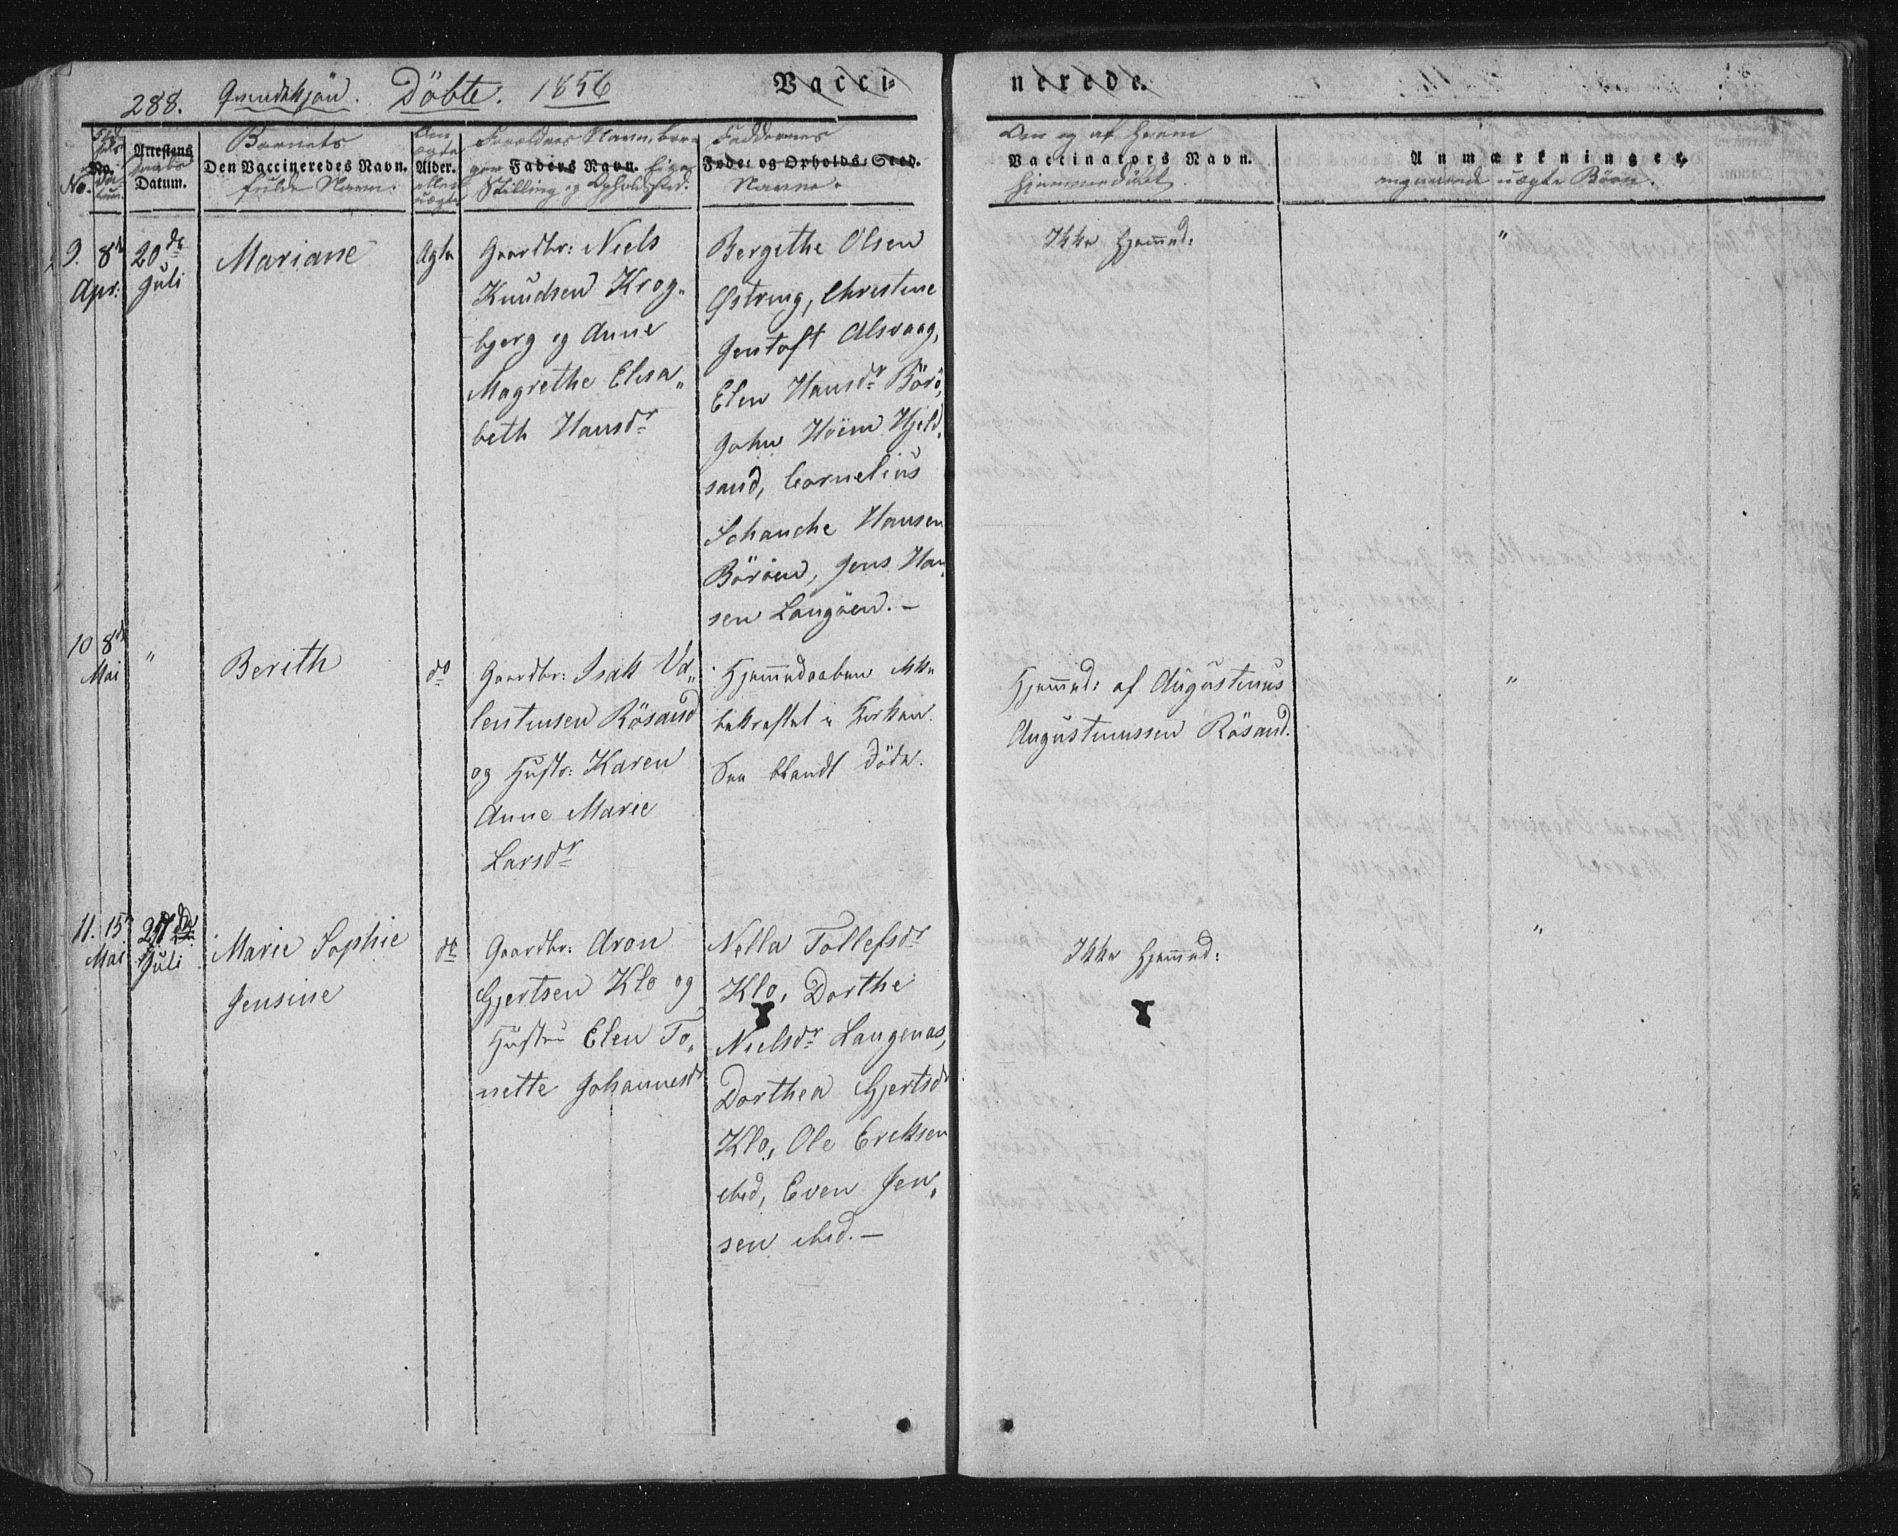 288. Qvindekjön. Döbte. 1856
Vacci- nerede.
No. Attestens Datum.
Barnets
Den Vaccineredes Navn.
fulde Navn.
Alder.
Forældres Navn, bor-
ger Faders Navn.
Stilling og Opholdsted.
Faddernes
Føde- og Opholds-Sted.
Navne.
Om og af hvem
Vaccinators Navn.
hjemmedöbt.
Anmærkninger
angaaende uægte Börn.
9. 8de Apr. 20de Juli
Mariane
Ægte
Gaardbr: Niels
Knudsen Krog„
bjerg og Anne
Magrethe Elisa„
beth Hansdr
Bergithe Olsen
Östring, Christine
Jentoft Alsvaag,
Elen Hansdr Börö,
John Höien Hjeld„
sand, Cornelius
Schanche Hansen
Böröen, Jens Han„
sen Langöen. —
Ikke Hjemmed:
"
10 8de Mai "
Berith
do
Gaardbr: Isak Va„
lentinsen Rösand
og Hustr: Karen
Anne Marie
Larsdr
Hjemmedaaben ikke
bekræftet i Kirken.
See blandt döde.
Hjemmed: af Augustinus
Augustinussen Rösand.
"
11. 15de Mai 27de Juli
Marie Sophie
Jensine
do
Gaardbr: Aron
Gjertsen Klo og
Hustru Elen To„
nette Johannesdr
Nella Tollefsdr
Klo, Dorthe
Nielsdr Langenæs,
Dorthea Gjertsdr
Klo, Ole Ericksen
ibid, Even Jen„
sen ibid. —
Ikke Hjemmed:
"